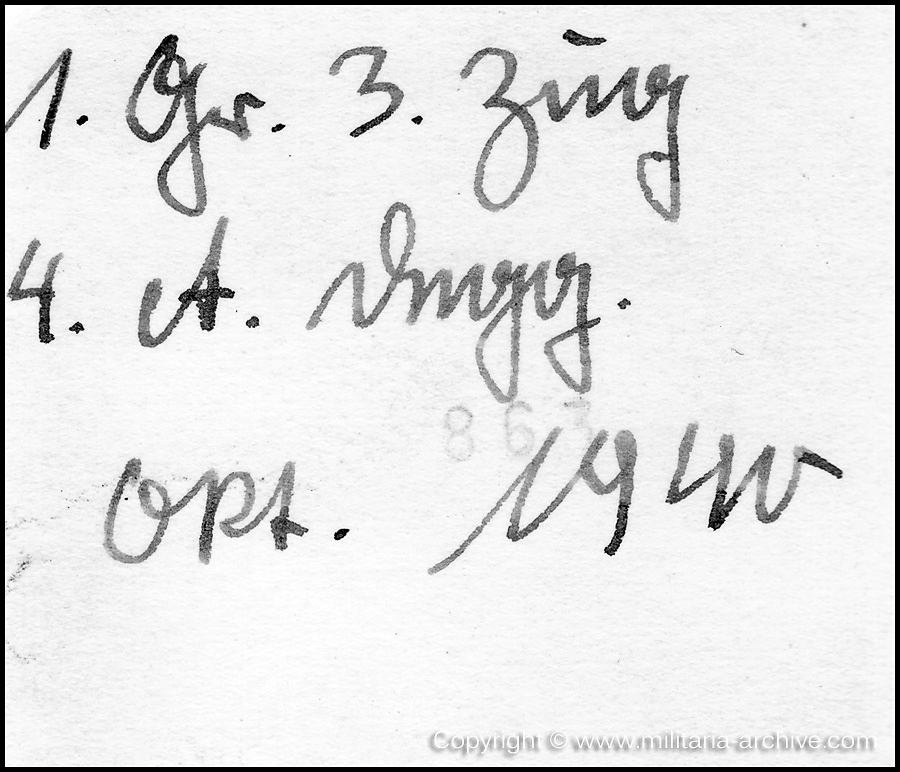 1. Gr. 3. Zug
4. A.
863
Okt. 1940
Copyright © www.militaria-archive.com